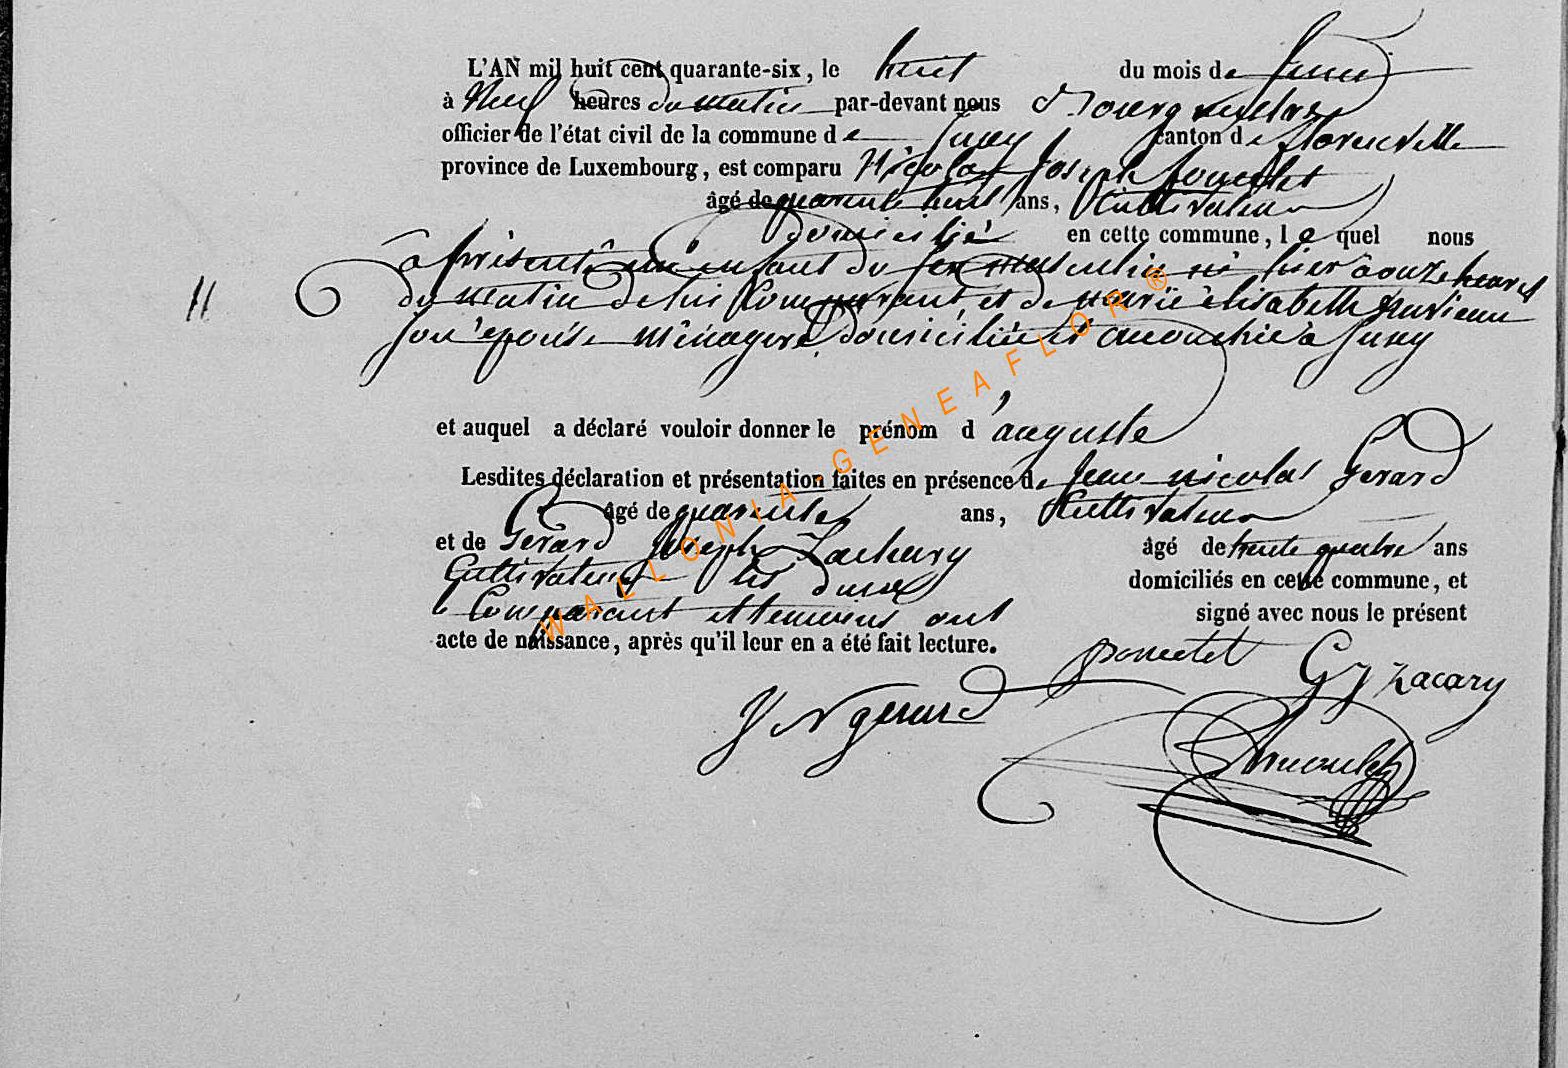 L'AN mil huit cent quarante-six, le huit du mois de
à Neuf heures du matin par-devant nous
officier de l'état civil de la commune de canton de florenville
province de Luxembourg, est comparu Nicolas Joseph poncelet
âgé de quarante huit ans, Cultivateur
domicilié en cette commune, lequel nous
a présenté un enfant du sexe masculin né hier à onze heures
11
du matin de lui Comparant et de marie élisabeth
son épouse ménagère domiciliée et accouchée à
et auquel a déclaré vouloir donner le prénom d'auguste
Lesdites déclaration et présentation faites en présence de Jean nicolas Gerard
âgé de quarante ans, Cultivateur
et de Gerard Joseph Zachary âgé de trente quatre ans
Cultivateur les deux domiciliés en cette commune, et
le Comparant et temoins ont signé avec nous le présent
acte de naissance, après qu'il leur en a été fait lecture.
poncelet G J Zacary
J N gerard
WALLONIA-GENEAFLOR®